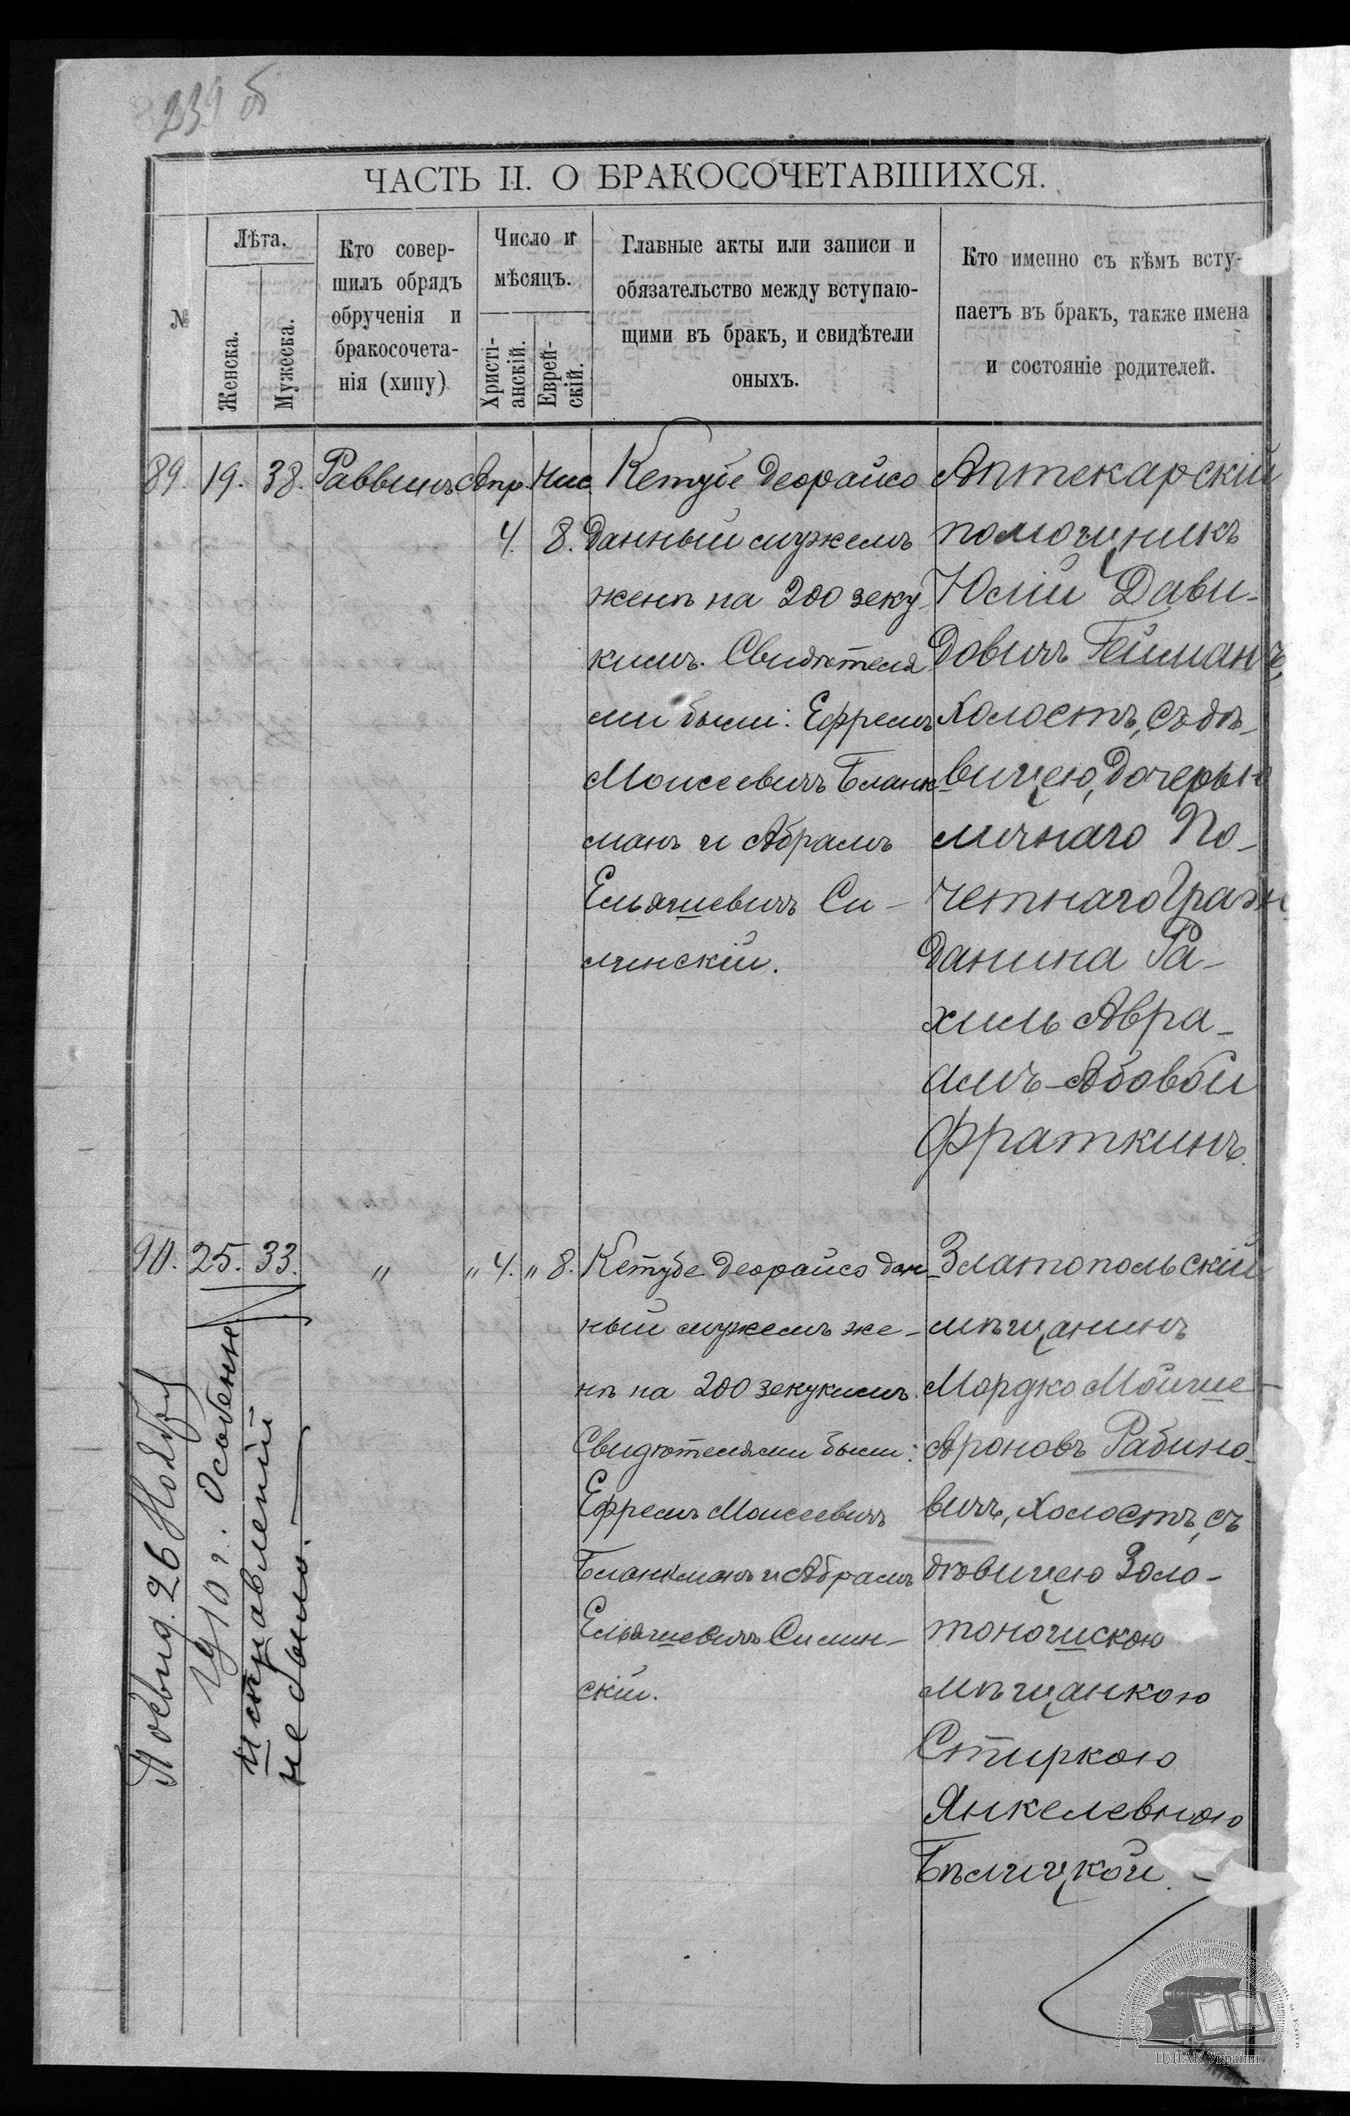 239 б
ЧАСТЬ II. О БРАКОСОЧЕТАВШИХСЯ.
№
Лѣта.
Женска.
Мужеска.
Кто совер-
шилъ обрядъ
обрученія и
бракосочета-
нія (хипу)
Число и
мѣсяцъ.
Христі-
анскій.
Еврей-
скій.
Главные акты или записи и
обязательство между вступаю-
щими въ бракъ, и свидѣтели
оныхъ.
Кто именно съ кѣмъ всту-
паетъ въ бракъ, также имена
и состояніе родителей.
89. 19. 38. Раввинъ Апр. Нис.
4. 8.
Кетубе деорайсо
данный мужемъ
женѣ на 200 зеку-
кимъ. Свидѣтеля
ми были: Ефремъ
Моисеевичъ Бланк-
манъ и Абрамъ
Ельяшевичъ Си-
линскій.
Аптекарскій
помощникъ
Юлій Дави-
довичъ Гейманъ,
холостъ, съ дѣ-
вицею, дочерью
личнаго По-
четнаго Граж
данина Ра-
хиль Авра-
амъ-Абовой
Фраткинъ.
90. 25. 33. " " 4. " 8.
Кетубе деорайсо дан-
ный мужемъ же-
нѣ на 200 зекукимъ.
Свидѣтелями были:
Ефремъ Моисеевичъ
Бланкманъ и Абрамъ
Ельяшевичъ Силин-
скій.
Златопольскій
мѣщанинъ
Мордко Мойше-
Ароновъ Рабино-
вичъ, холостъ, съ
дѣвицею Золо-
тоношскою
мѣщанкою
Стиркою
Янкелевною
Бѣлицкой. -
26 Ноября
1910 г. Особенные
исправленій
не было. —
ЦДІАК України